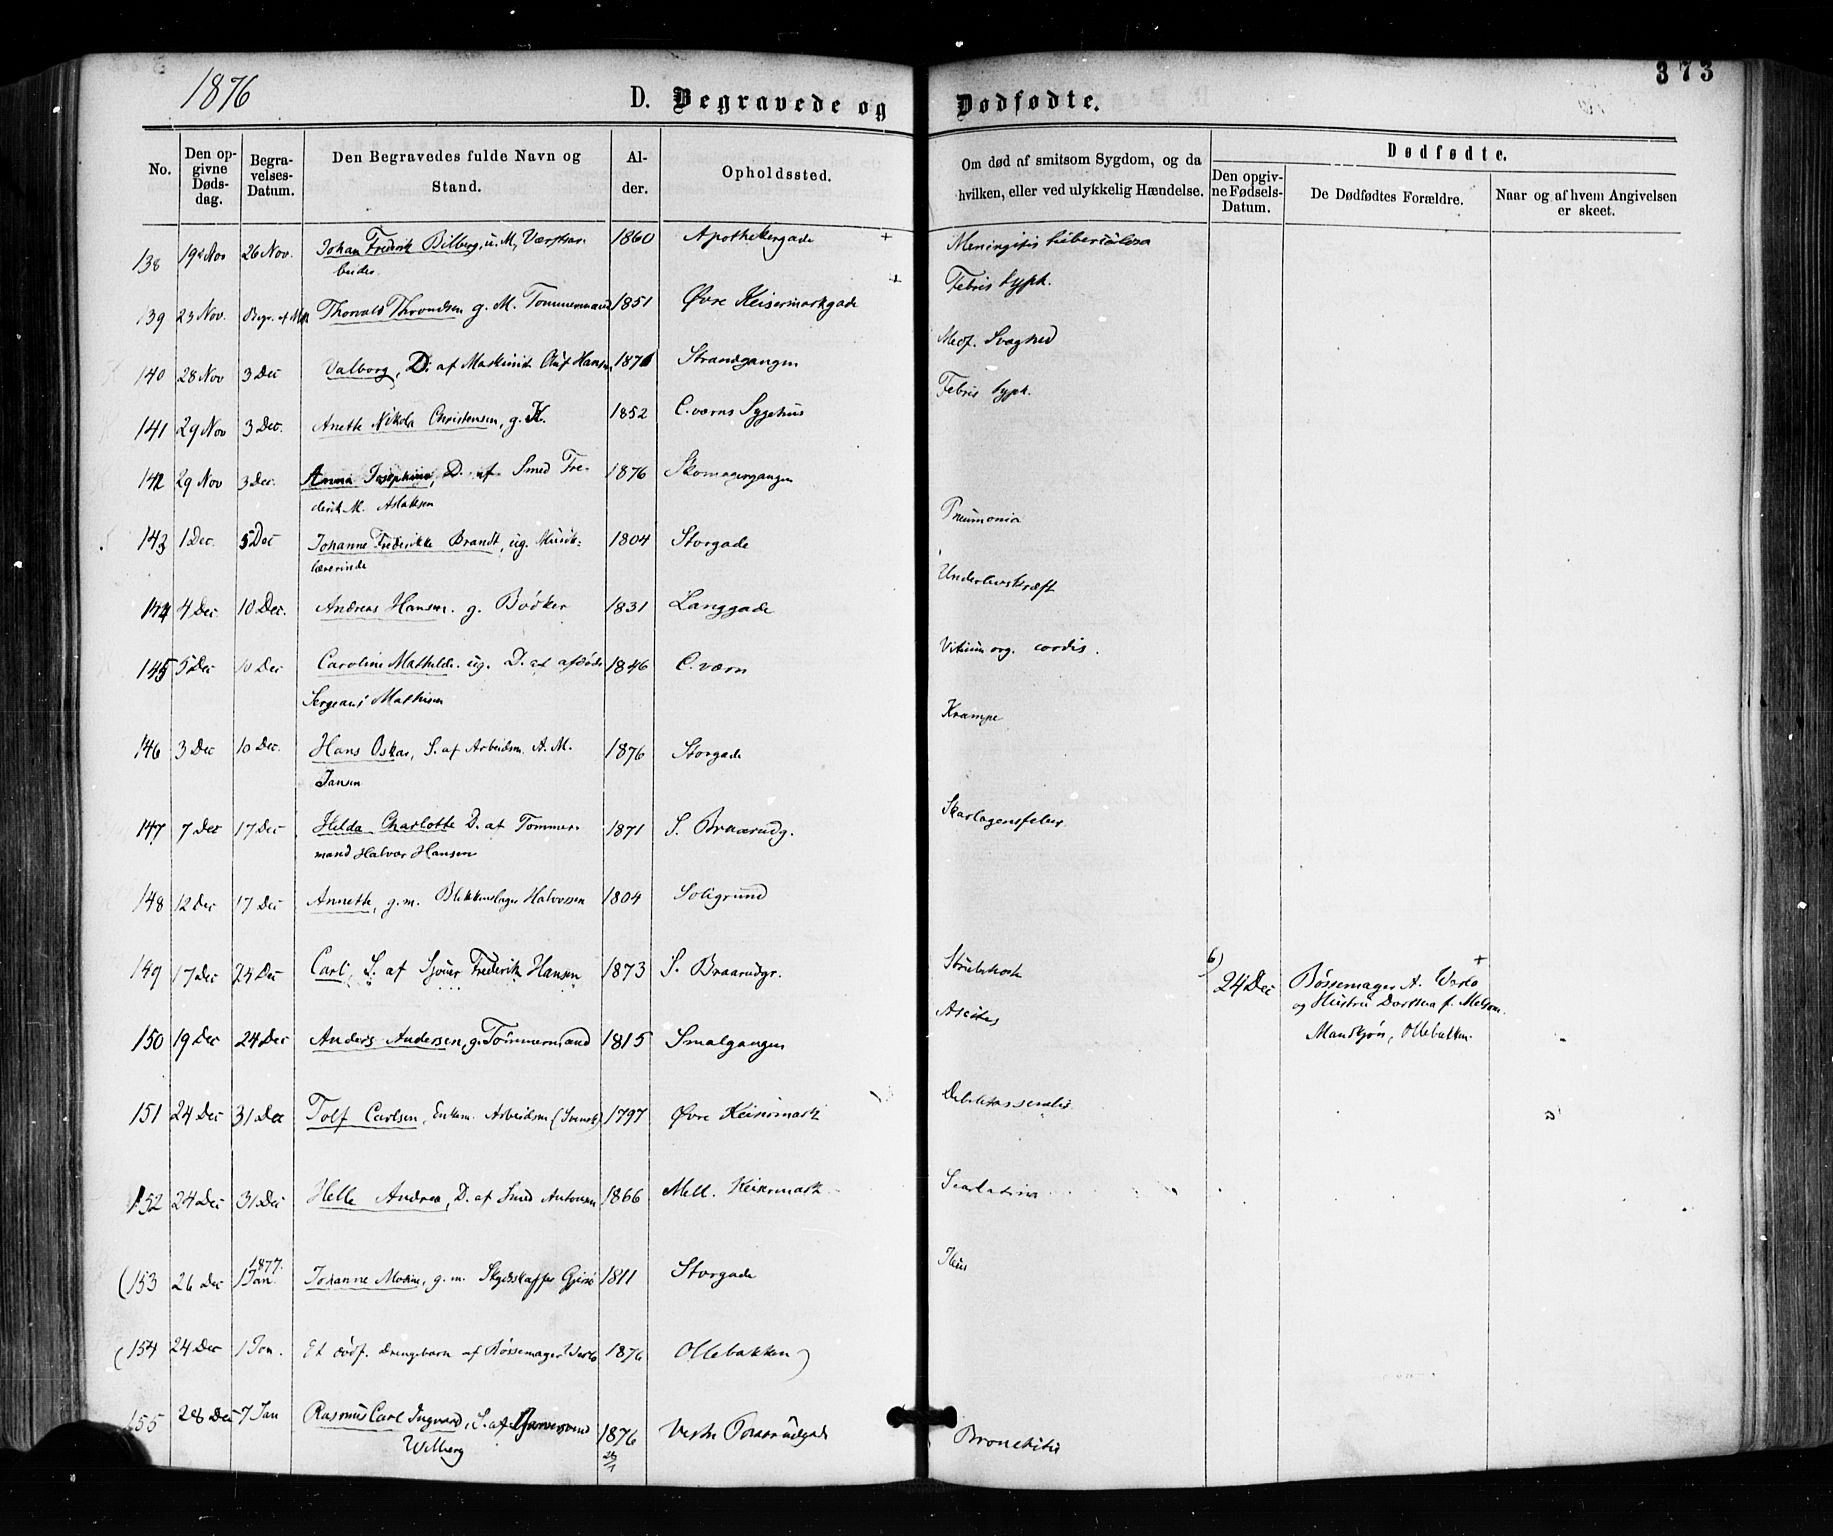 1876
D. Begravede og Dødfødte.
373
No.
Den op-
givne
Døds-
dag.
Begra-
velses-
Datum.
Den Begravedes fulde Navn og
Stand.
Al-
der.
Opholdssted.
Om død af smitsom Sygdom, og da
hvilken, eller ved ulykkelig Hændelse.
Dødfødte.
Den opgiv-
ne Fødsels-
Datum.
De Dødfødtes Forældre.
Naar og af hvem Angivelsen
er skeet.
138 19 Nov 26 Nov. Johan Frederik Bilberg, u. M, Værftsar- 1860 Apothekergade + Meningitis tuberculosa
beider
139 23 Nov. Begr. af Thorvald Throndsen g. M. Tømmermand 1851 Øvre Keisermarkgade + Febris typh.
140 28 Nov 3 Dec Valborg, D. af Maskinist Oluf Hansen 1871 Strandgangen Medf. Svaghed
141 29 Nov 3 Dec. Anette Nikola Christensen, g. K. 1852 C.værns Sygehus Febris typh.
142 29 Nov 3 Dec. Anna Josephine, D. af Smed Fre- 1876 Skomagergangen
derik M. Aslaksen
143 1 Dec. 5 Dec Johanne Frederikke Brandt, ug. Musik- 1804 Storgade Pneumonia
lærerinde
144 4 Dec 10 Dec. Andreas Hansen. g. Bødker 1831 Langgade Underlivskræft
145 5 Dec 10 Dec Caroline Mathilde. ug. D. af afdøde 1846 C.værn Vitium org. cordis.
Sergeant Mathisen
146 3 Dec 10 Dec. Hans Oskar, S. af Arbeidsm. A. M. 1876 Storgade Krampe
Jansen
147 7 Dec 17 Dec Helda Charlotte D. af Tømmer- 1871 S. Braarudg. Skarlagensfeber
mand Halvor Hansen
148 12 Dec 17 Dec Annette, g.m. Blikkenslager Halvorsen 1804 Soligrund
149 17 Dec 24 Dec Carl, S. af Sjøm Frederik Hansen 1873 S. Braarudgr. Strubehoste
6) 24 Dec Bøssemager A. +
og Hustru f. Melsom.
Mandkjøn, Ollebakken.
150 19 Dec 24 Dec Anders Andersen, g. Tømmermand 1815 Smalgangen Ascites
151 24 Dec 31 Dec Tolf Carlsen, Enkem. Arbeidsm (Svensk) 1797 Øvre Keisermark Debilitas senilis
152 24 Dec 31 Dec Helle Andrea, D. af Smed Antonsen 1866 Mell. Keisermark Scarlatina
(153 26 Dec 1877. 1 Jan. Johanne g. m. Skydsskaffer 1811 Storgade Ileus
(154 24 Dec 1 Jan. Et dødf. Drengebarn af Bøssemager 1876 Ollebakken)
155 28 Dec 7 Jan Rasmus Carl Ingvard, S. af Garversvend 1876 Vestre Braarudgade Bronchitis
Wilberg 26/1